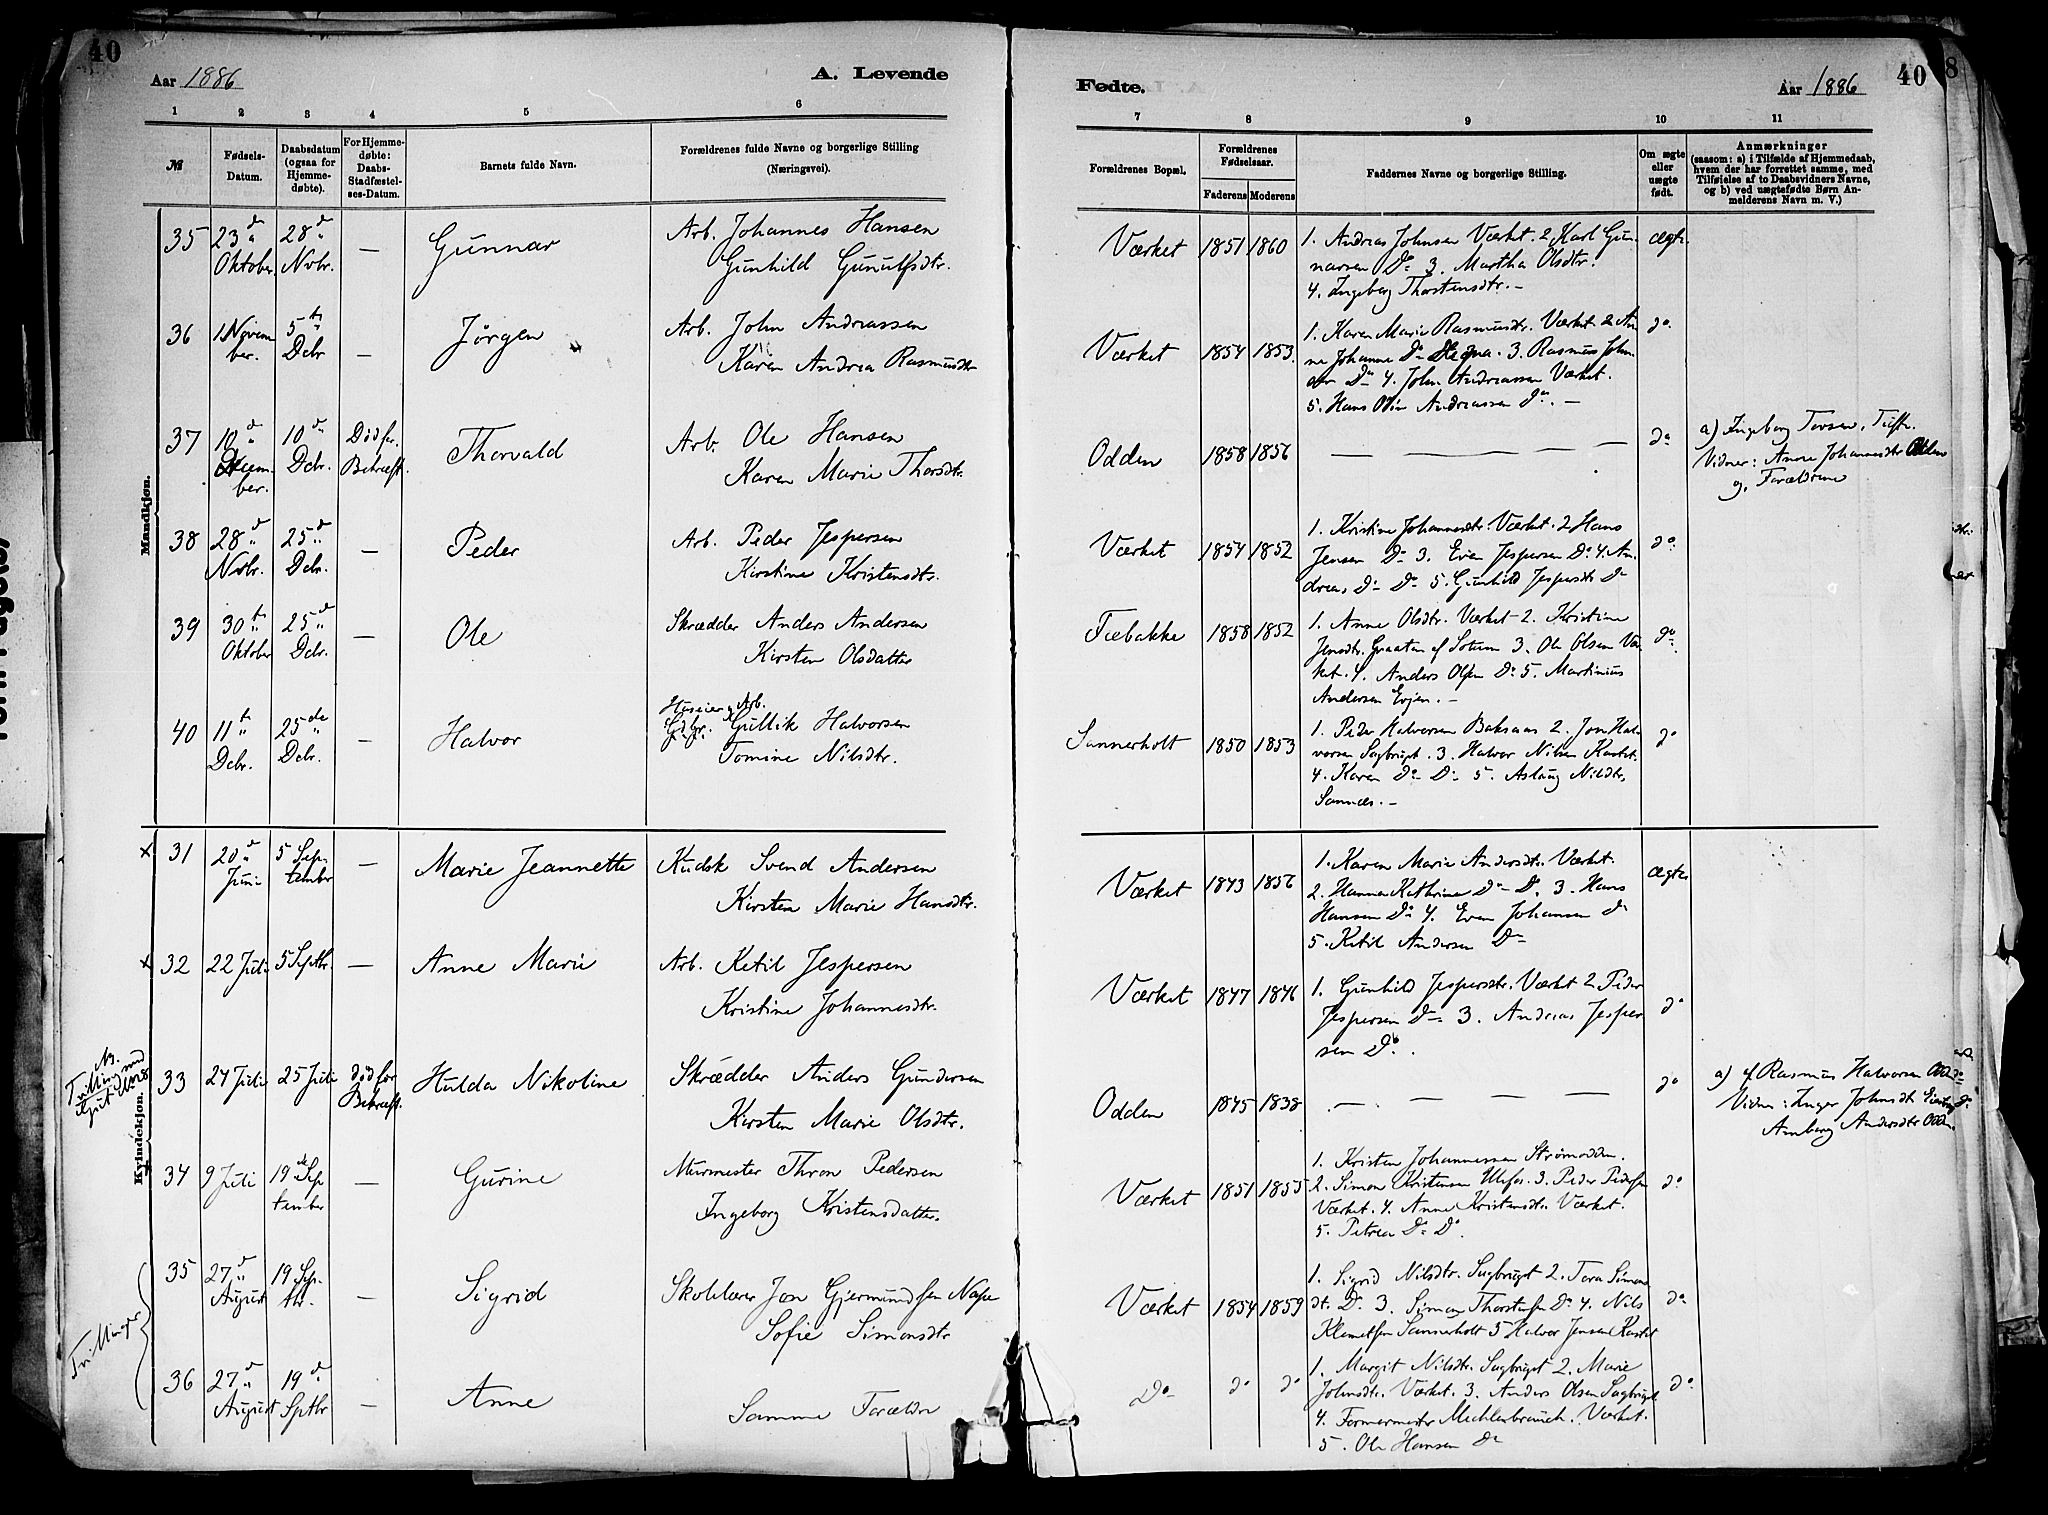 40
Aar 1886
A. Levende
1 2 3 4 5 6
№
Fødsels-Datum.
Daabsdatum (ogsaa for Hjemmedøbte).
For Hjemmedøbte: Daabs-Stadfæstelses-Datum.
Barnets fulde Navn.
Forældrenes fulde Navne og borgerlige Stilling
(Næringsvei).
Mandkjøn.
35 23d 28d — Gunnar Arb. Johannes Hansen
Oktober Nvbr. Gunhild Gunulfsdtr.
36 1 Novem 5t — Jørgen Arb. John Andreassen
ber. Dcbr Karen Andrea Rasmusdtr
37 10d 10d Død før Thorvald Arb. Ole Hansen
ber. Dcbr. Bekræft. Karen Marie Thorsdtr.
38 28d 25d — Peder Arb. Peder Jespersen
Nvbr. Dcbr. Kirstine Kristensdtr.
39 30t 25d — Ole Skrædder Anders Andersen
Oktober Dcbr. Kirsten Olsdatter
Huseier, Arb.
40 11t 25de — Halvor Gullik Halvorsen
Dcbr. Dcbr. Tomine Nilsdtr.
Kvindekjøn.
x 31 20d 5 Sep- — Marie Jeannette Kudsk Svend Andersen
Juni tember Kirsten Marie Hansdtr.
x 32 22 Juli 5 Septbr. — Anne Marie Arb. Ketil Jespersen
Kristine Johannesdtr.
33 24 Juli 25 Juli død før Hulda Nikoline Skrædder Anders Gundersen
Bekræft. Kirsten Marie Olsdtr.
34 9 Juli 19de Sep — Gurine Murmester Thron Pedersen
tember Ingeborg Kristensdatter.
Tvillinger
35 27d 19 Sep- — Sigrid Skolelærer Jon Gjermundsen Nape
August tbr. Sofie Simonsdtr
36 27d 19d — Anne Samme Forældre
August Sptbr
Fødte.
Aar 1886
40
8
7 8 9 10 11
Forældrenes Bopæl.
Forældrenes Fødselsaar.
Faderens Moderens
Faddernes Navne og borgerlige Stilling.
Om ægte eller uægte født.
Anmærkninger
(saasom: a) i Tilfælde af Hjemmedaab,
hvem der har forrettet samme, med
Tilføielse af to Daabsvidners Navne,
og b) ved uægtefødte Børn Anmelderens Navn m. V.)
Værket 1851 1860 1. Andreas Johnsen Værket. 2 Karl Gun- ægte.
narsen Do 3. Martha Olsdtr.
4. Ingeborg Thorstensdtr. —
Værket 1854 1853. 1. Karen Marie Rasmusdtr. Værket. 2 An do.
ne Johanne Do Hegna. 3. Rasmus John
Do 4. John Andreassen Værket.
5. Hans Andreassen do. —
Odden 1858 1856 — — — — do a) Ingeborg
Vidner: Anne Johannesdtr Odden
og Forældrene
Værket 1854 1852 1. Kristine Johannesdtr. Værket. 2 Hans do.
Jensen Do 3. Even Jespersen Do 4. An
drea Do Do 5. Gunhild Jespersdtr Do
Fæbakke 1858 1852 1. Anne Olsdtr. Værket 2. Kristine do.
Jensdtr. Graaten af Solum 3. Ole Olsen Vær
ket. 4. Anders Olsen Do 5. Martinius
Andersen Evjen. —
Sannerholt 1850 1853 1. Peder Halvorsen Baksaas 2. Jon Hal- do
vorsen Sagbruget. 3. Halvor Nilsen Kastet.
4. Karen Do Do 5. Aslaug Nilsdtr.
Sannæs. —
Værket 1843 1856 1. Karen Marie Andersdtr. Værket. ægte.
2. Hanna Kathrine Do Do 3. Hans
Hansen Do 4. Even Johansen Do
5. Ketil Andersen Do
Værket 1847 1846 1. Gunhild Jespersdtr. Værket 2 Peder do
Jespersen Do 3. Andreas Jesper
sen Do.
Odden 1845 1838 — — — — do a) af Rasmus Halvorsen
Vidner: Inger Johnsdt
Amborg Andersdtr Odden.
Værket 1851 1855 1. Kristen Johannessen Strømodden. do
2. Simon Kristensen Ulefos. 3. Peder Pedersen
Værket. 4. Anne Kristensdtr. Værket.
5. Petrea Do Do.
Værket 1854 1859 1. Sigrid Nilsdtr. Sagbruget 2. Tora Simons do
dt. Do 3. Simon Thorstensen Do 4. Nils
Klemetsen Sannerholt 5 Halvor Jensen Kastet
Do do do 1. Margit Nilsdtr. Sagbruget 2. Marie do.
Johnsdtr. Værket. 3. Anders Olsen Sagbruget
4. Formermester Mechlenbrauch. Værket.
5. Ole Hansen Do